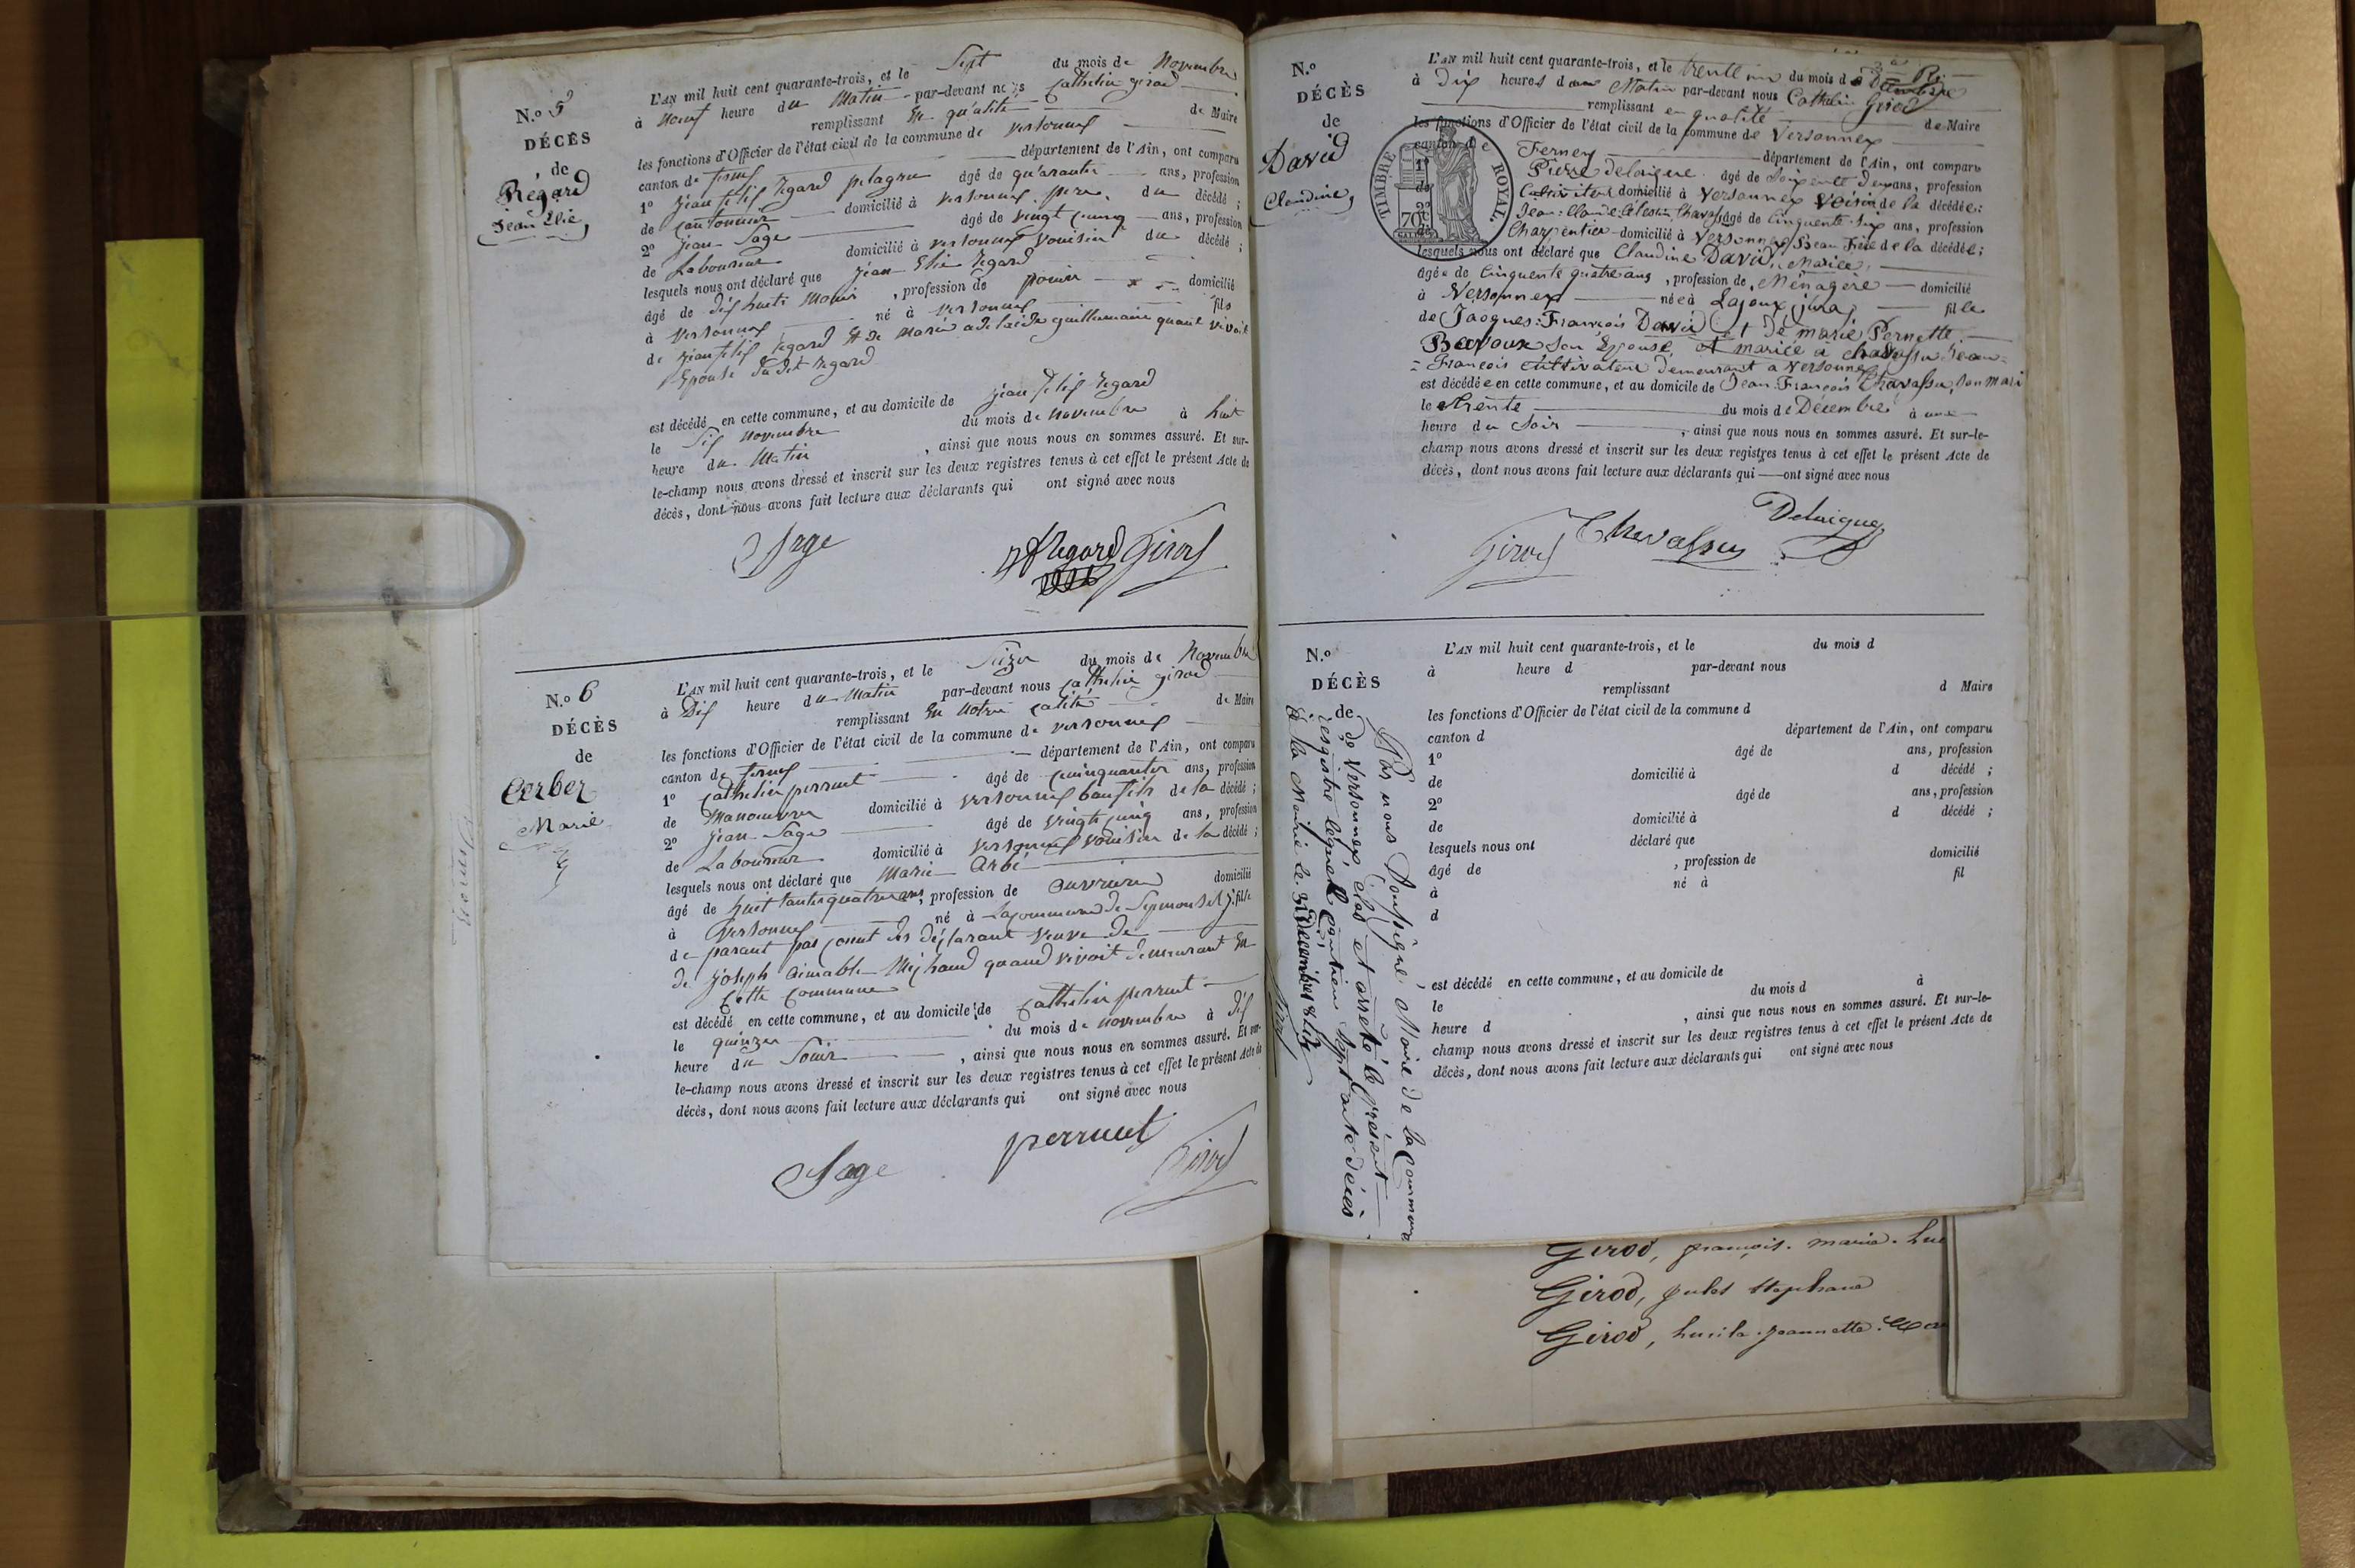 N.o 5
DÉCÈS
de
Regard
Jean Elie
L'AN mil huit cent quarante-trois, et le Sept du mois de Novembre
à neuf heure du Matin par-devant nous Cathelin girod
remplissant En qualité de Maire
les fonctions d'Officier de l'état civil de la commune de versonnex
canton de fernex département de l'Ain, ont comparu
1o jean felix regard pelagru âgé de quarante ans, profession
de cantonnier domicilié à versonnex pere du décédé ;
2o jean Sage âgé de vingt cinq ans, profession
de Laboureur domicilié à versonnex vouisin du décédé ;
lesquels nous ont déclaré que jean Elie regard
âgé de dix huits Mouis , profession de domicilié
à versonnex né à versonnex fils
de jean felix regard Et de Marie adelaide guillumaire quant vivoit
Epouse dudit regard
est décédé en cette commune, et au domicile de jean felix regard
le Six novembre du mois de novembre à huit
heure du Matin , ainsi que nous nous en sommes assuré. Et sur-
le-champ nous avons dressé et inscrit sur les deux registres tenus à cet effet le présent Acte de
décès, dont nous avons fait lecture aux déclarants qui ont signé avec nous
Sage
Regard Girod
N.o 6
DÉCÈS
de
Cerber
Marie
L'AN mil huit cent quarante-trois, et le Seize du mois de Novembre
à Dix heure du Matin par-devant nous Cathelin girod
remplissant En Notre calité de Maire
les fonctions d'Officier de l'état civil de la commune de versonnex
canton de fernex département de l'Ain, ont comparu
1o Cathelin perruet âgé de cuinquante ans, profession
de Manoeuvre domicilié à versonnex baufils de la décédé ;
2o jean Sage âgé de vingt cinq ans, profession
de Laboureur domicilié à versonnex vouisin de la décédé ;
lesquels nous ont déclaré que Marie arbé
âgé de huit tante quatre ans, profession de ouvriere domicilié
à versonnex né à La commune de Sepmonsel j. fille
de parant pas conut des déclarant veuve de
de joseph aimable Mighaud quand vivoit demeurant En
cette commune
est décédé en cette commune, et au domicile de Cathelin perruet
le quinze du mois de novembre à dix
heure du Souir , ainsi que nous nous en sommes assuré. Et sur-
le-champ nous avons dressé et inscrit sur les deux registres tenus à cet effet le présent Acte de
décès, dont nous avons fait lecture aux déclarants qui ont signé avec nous
Sage perruet
Girod
N.o
DÉCÈS
de
David
Claudine
L'AN mil huit cent quarante-trois, et le trente un du mois de Décembre
à Dix heures du Matin par-devant nous Cathelin Girod
remplissant en qualité de Maire
les fonctions d'Officier de l'état civil de la commune de Versonnex
canton de Ferney département de l'Ain, ont comparu
1o Pierre delaigue âgé de Soixente deux ans, profession
de Cultivateur domicilié à Versonnex Voisin de la décédée ;
2o Jean-Claude Célestin Chavassu âgé de Cinquente six ans, profession
de Charpentier domicilié à Versonnex Beau Frère de la décédée ;
lesquels nous ont déclaré que Claudine David, Mariée,
âgée de Cinquente quatre ans , profession de Ménagère domicilié
à Versonnex née à Lajoux jura, fille
de Jacques-François David et de marie Pernette
Bavoux son Epouse, et mariée a chavassu Jean-
François Cultivateur demeurant a Versonnex
est décédée en cette commune, et au domicile de Jean-François Chavassu, son mari
le trente du mois de Décembre à une
heure du Soir , ainsi que nous nous en sommes assuré. Et sur-le-
champ nous avons dressé et inscrit sur les deux registres tenus à cet effet le présent Acte de
décès, dont nous avons fait lecture aux déclarants qui ont signé avec nous
TIMBRE ROYAL
70c
Delaigue
Girod Chavassus
N.o
DÉCÈS
de
L'AN mil huit cent quarante-trois, et le du mois d
à heure d par-devant nous
remplissant d Maire
les fonctions d'Officier de l'état civil de la commune d
canton d département de l'Ain, ont comparu
1o âgé de ans, profession
de domicilié à d décédé ;
2o âgé de ans, profession
de domicilié à d décédé ;
lesquels nous ont déclaré que
âgé de , profession de domicilié
à né à fil
d
est décédé en cette commune, et au domicile de
le du mois d à
heure d , ainsi que nous nous en sommes assuré. Et sur-le-
champ nous avons dressé et inscrit sur les deux registres tenus à cet effet le présent Acte de
décès, dont nous avons fait lecture aux déclarants qui ont signé avec nous
Par nous Soussigné, Maire de la Commune
de Versonnex clos et arreté le présent
registre lequel contient Sept acte décès
à la Mairie le 31 Décembre 1843
Girod
Girod, françois. marie. luc
Girod, jules stephane
Girod, lucile. jeannette. Mar